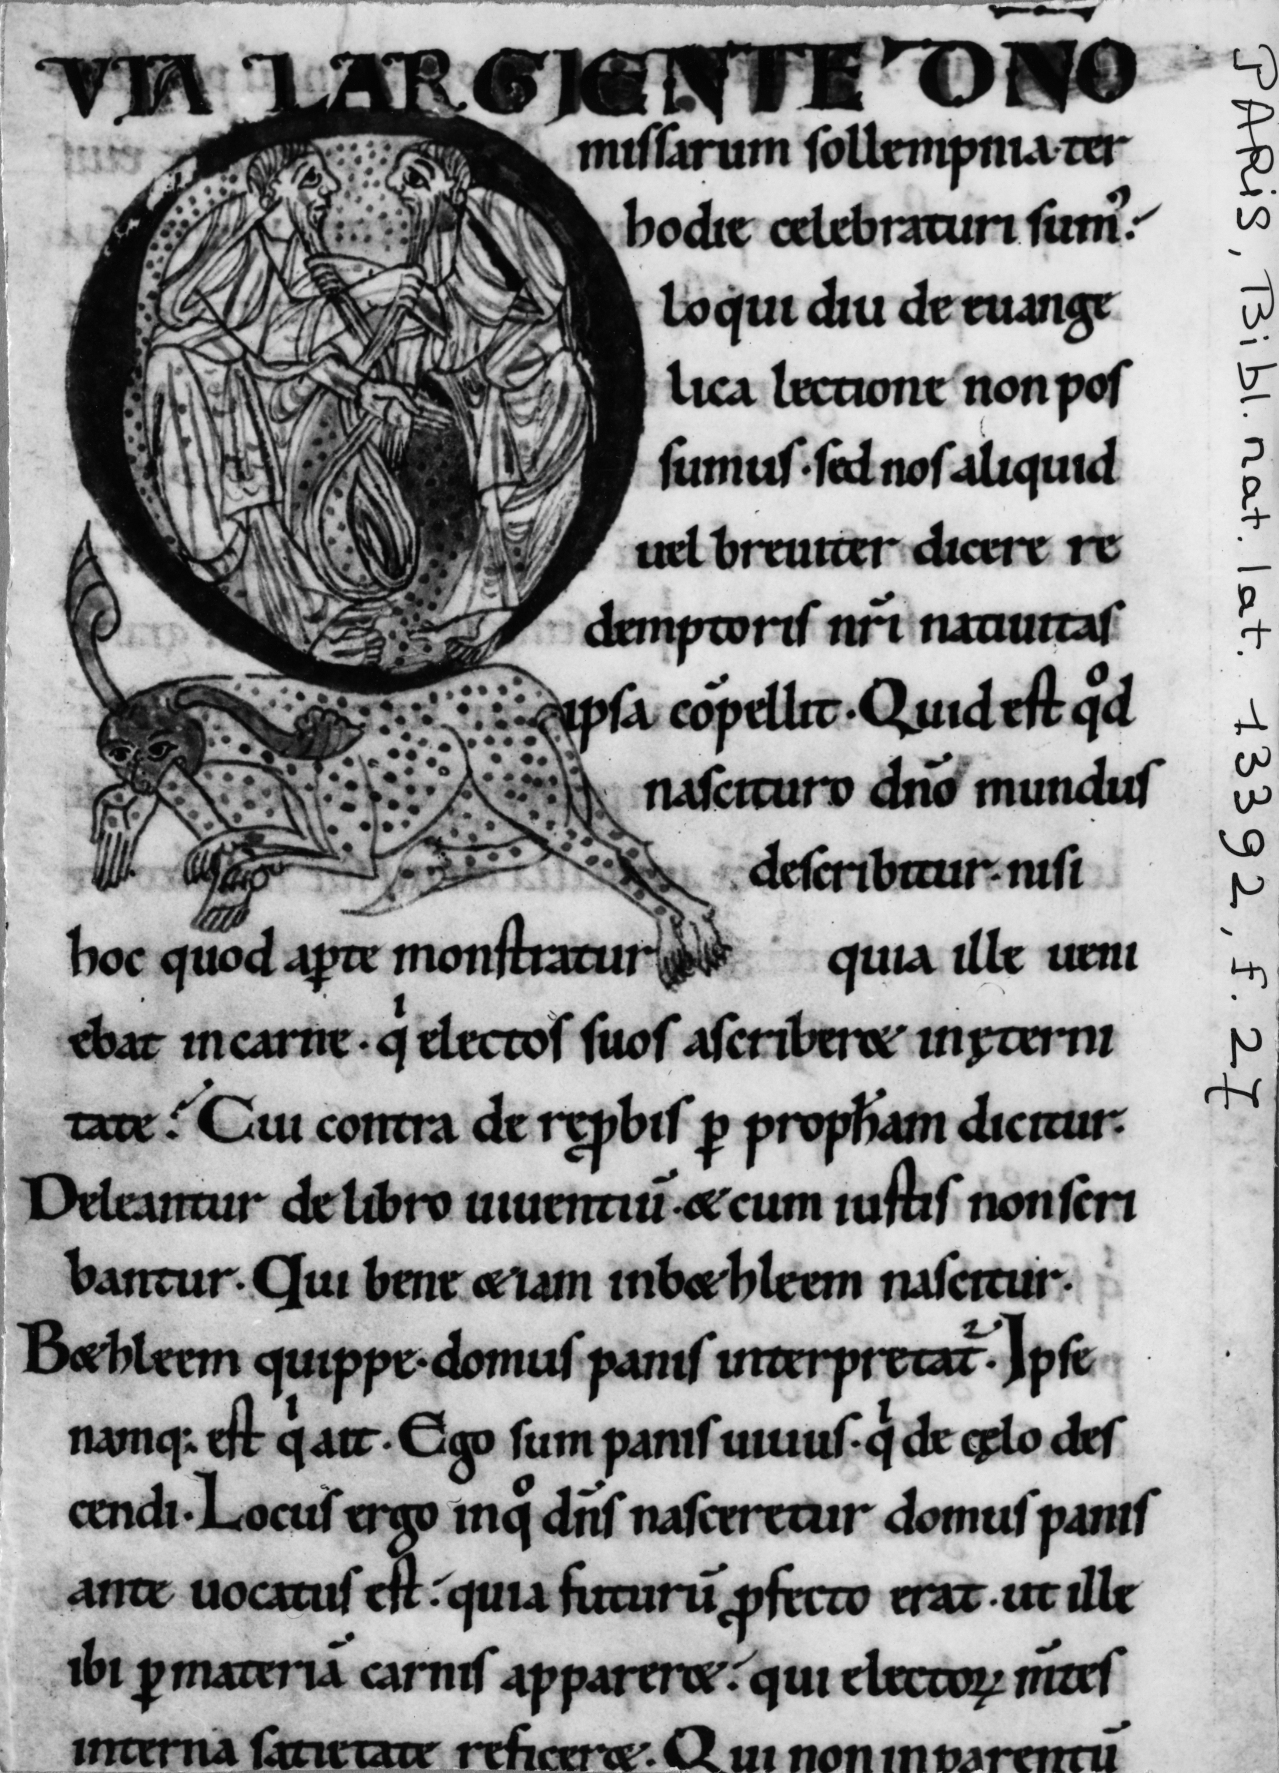 VIA LARGIENTE DÑO
missarum sollempnia ter
hodie celebraturi sumꝰ.
loqui diu de euange
lica lectione non pos
sumus · sed nos aliquid
uel breuiter dicere re
demptoris nr̄i natiuitas
ipsa cōpellit · Quid est qͦd
nascituro dn̄o mundus
describitur · nisi
hoc quod aꝑte monstratur quia ille ueni
ebat in carne · qͥ electos suos ascriberet in ęterni
tate. Cui contra de reꝓbis ꝑ proph̄am dicitur.
Deleantur de libro uiuentiū · & cum iustis non scri
bantur. Qui bene &iam in b&hleem nascitur.
B&hleem quippe · domus panis interpretat᷑. Ipse
namq; est qͥ ait · Ego sum panis uiuus · qͥ de cęlo des
cendi. Locus ergo in qͦ dn̄s nasceretur domus panis
ante uocatus est. quia futurū ꝓfecto erat · ut ille
ibi ꝑ materiā carnis appareret. qui electoꝝ m̄tes
interna satietate reficeret. Qui non in parentū
PARIS, Bibl. nat. lat. 13392, f. 27